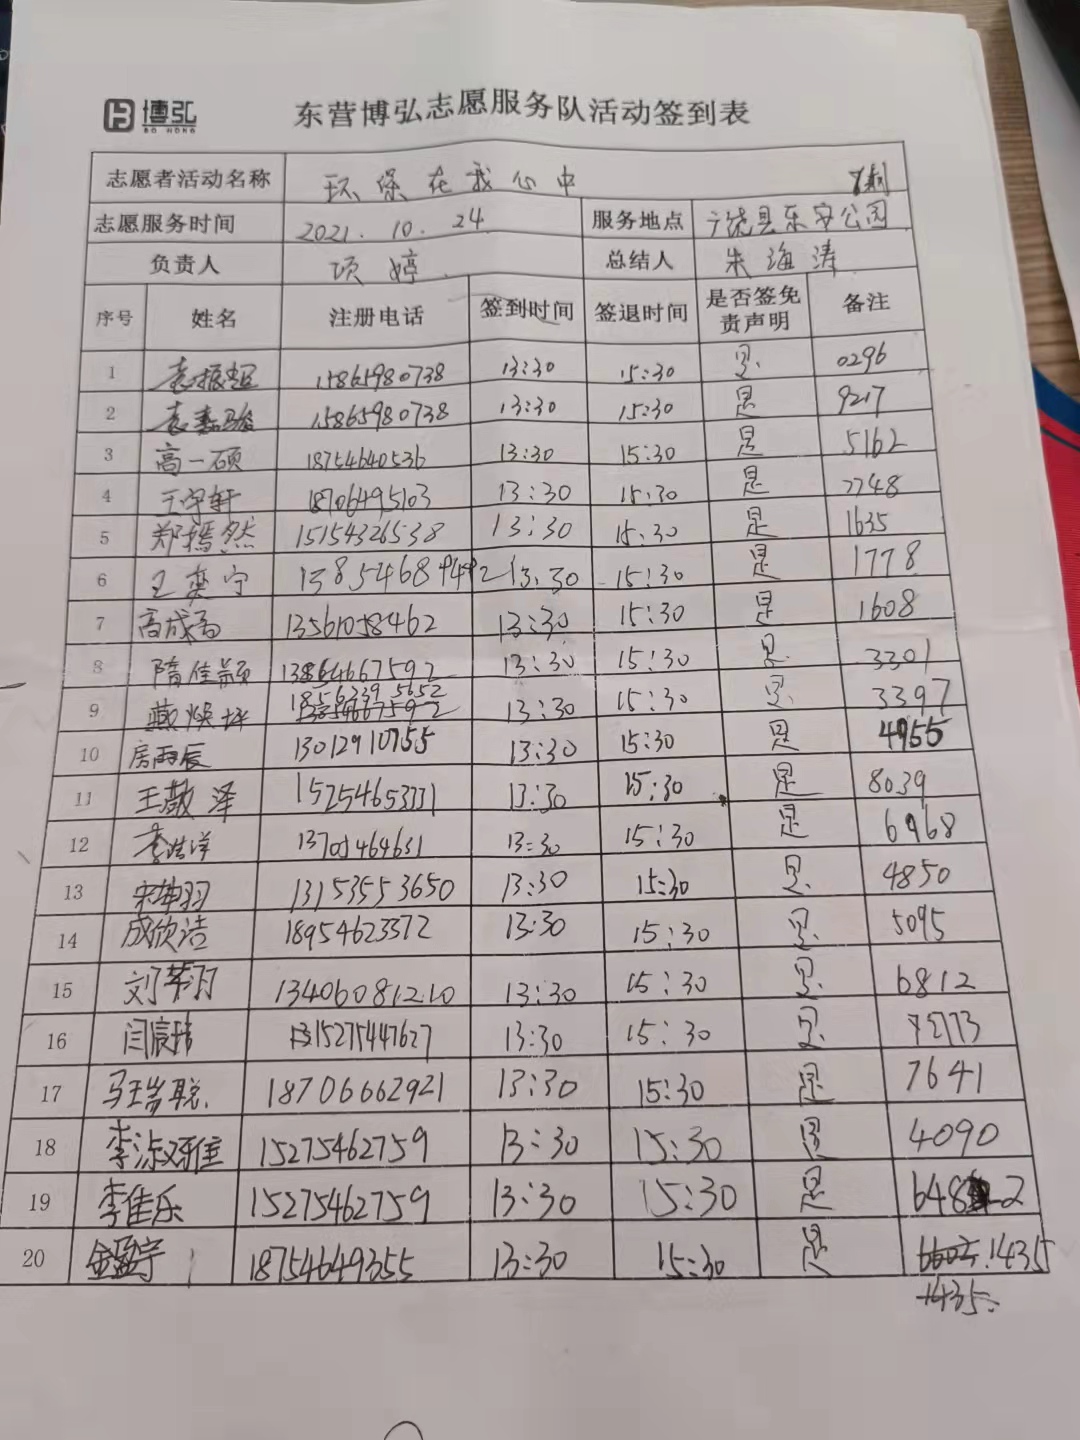 博弘
BO HONG
东营博弘志愿服务队活动签到表
志愿者活动名称 环保在我心中 8期
志愿服务时间 2021.10.24 服务地点 广饶县乐安公园
负责人 项婷 总结人 朱海涛
序号 姓名 注册电话 签到时间 签退时间 是否签免责声明 备注
1 袁振超 15865980738 13:30 15:30 是 0296
2 袁嘉骏 15865980738 13:30 15:30 是 9217
3 高一硕 18754640536 13:30 15:30 是 5162
4 王宇轩 18706495103 13:30 15:30 是 7748
5 郑嫣然 15154326538 13:30 15:30 是 1635
6 王奕宁 13854689492 13:30 15:30 是 1778
7 高成 13561058462 13:30 15:30 是 1608
8 隋佳颖 13864667592 13:30 15:30 是 3301
9 18563395652 13:30 15:30 是 3397
10 房雨辰 13012910755 13:30 15:30 是 4955
11 王敬泽 15254653331 13:30 15:30 是 8039
12 李浩洋 13705464631 13:30 15:30 是 6968
13 宋坤羽 13153553650 13:30 15:30 是 4850
14 成欣洁 18954623372 13:30 15:30 是 5095
15 刘芊汐 13406081210 13:30 15:30 是 6812
16 闫宸 15275447627 13:30 15:30 是
17 马瑞聪 18706662921 13:30 15:30 是 7641
18 李淑雅 15275462759 13:30 15:30 是 4090
19 李佳乐 15275462759 13:30 15:30 是 6482
20 金盈宇 18754649355 13:30 15:30 是 1435